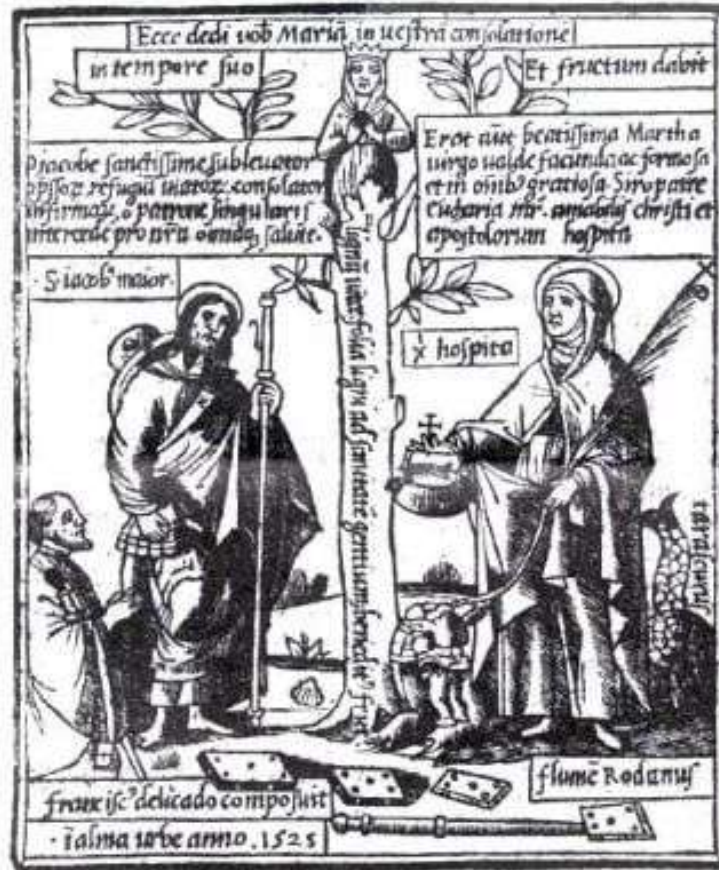 Ecce dedi vob Mariã in uestra consolatione
in tempore suo
Et fructum dabit
O iacobe sanctissime subleuator
opssoꝝ refugiũ uiatoꝝ consolator
infirmaꝝ, o patrone singularis
intercede pro nr̃a omniũ salute.
Erat aũt beatissima Martha
uirgo ualde facunda ac formosa
et in omib⁹ gratiosa. Siro patre
Eucharia mr̃. amabilis christi et
apostolorum hospita
S. iacob⁹ maior.
hospita
lignũ uite folia ligni ad sanitatẽ gentium
tarasconus
flumẽ Rodanus
francisc⁹ delicado composuit
ĩ alma urbe anno. 1525